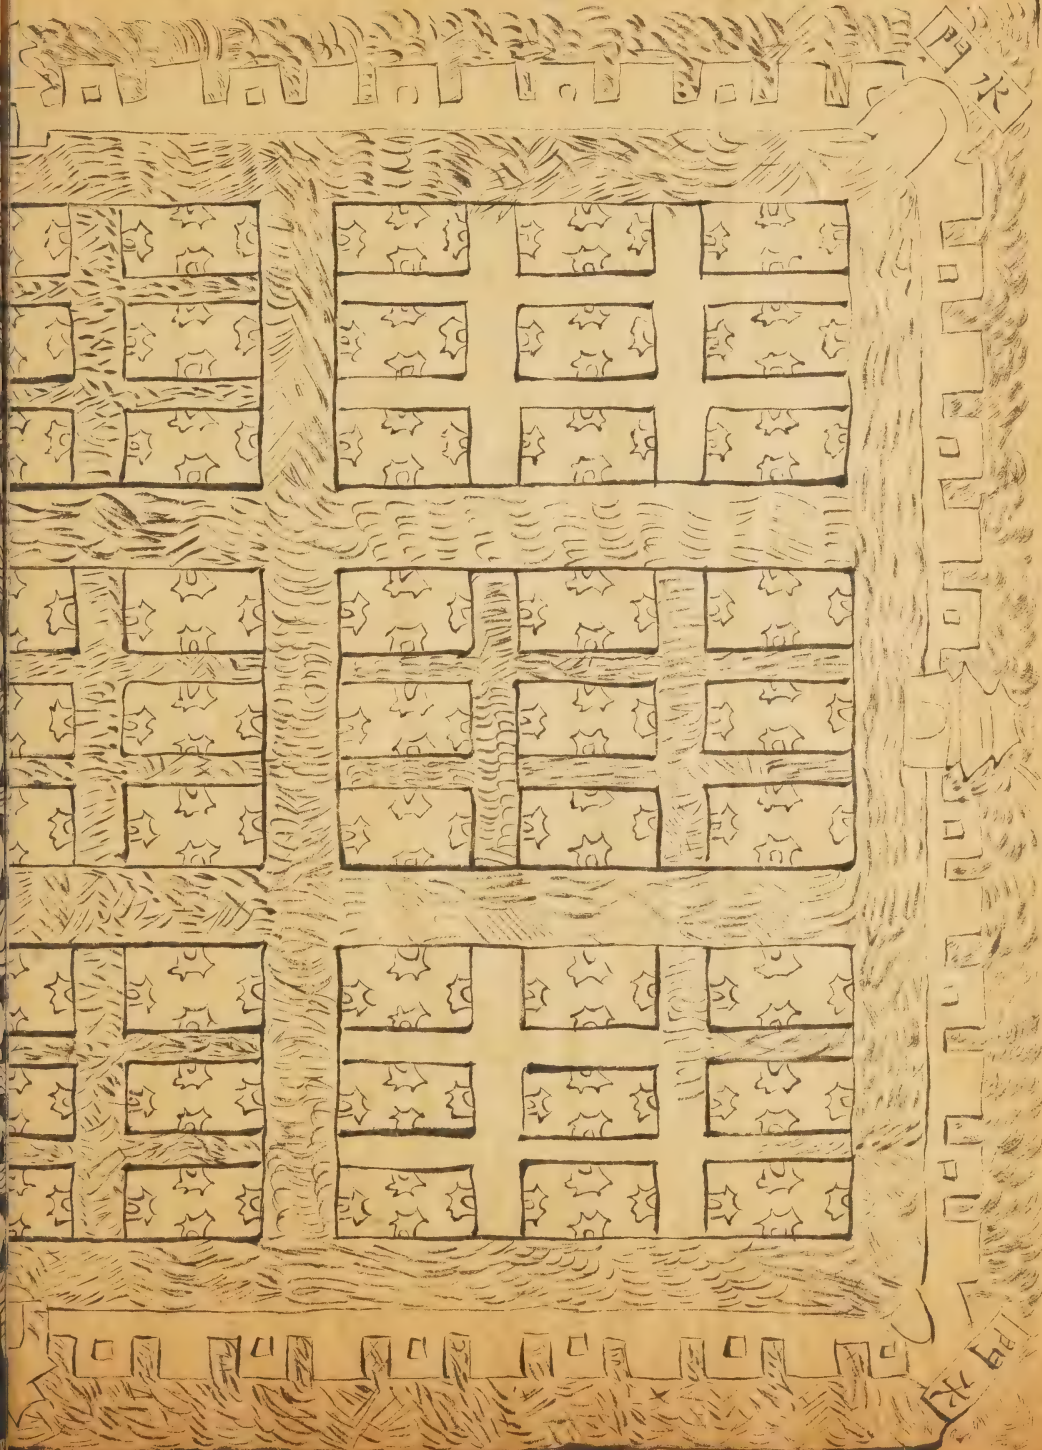 水門
水門